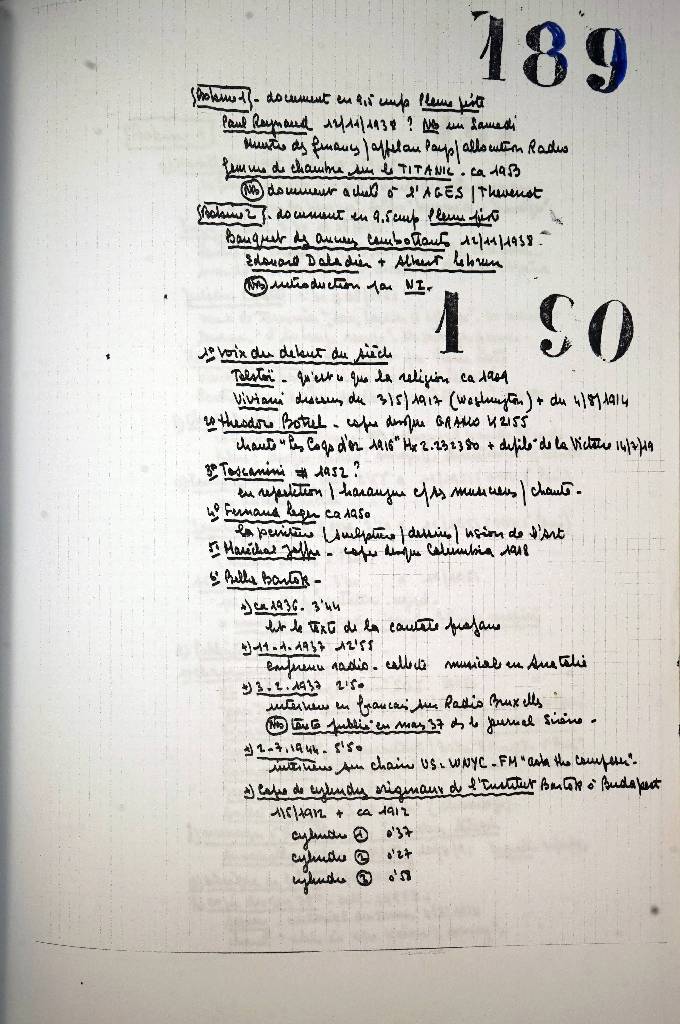 189
{Bobine 1}. document en 9,5 cm/s Pleine piste
Paul Reynaud 12/11/1938 ? NB un Samedi
ministre des finances / appel au Pays / allocution Radio
femme de chambre sur le TITANIC. ca 1953
NB document acheté à l'AGES / Thevenot
{Bobine 2}. document en 9.5 cm/s Pleine piste
Banquet des anciens combattants 12/11/1938.
Edouard Daladier + Albert Lebrun
NB introduction par
190
1° Voix du debut du siècle
Tolstoï - qu'est ce que la religion ca 1909
Viviani discours du 3/5/1917 (Washington) + du 4/8/1914
2° Theodore Botrel - copie disque GRAMO K2155
chante "les Coqs d'or 1916" Mx 2.232380 + defilé de la Victoire 14/7/19
3° Toscanini 1952 ?
en repetition / harangue c/ses musiciens / chante -
4° Fernand Leger ca 1950
la peinture / sculpture / dessins / vision de l'Art
5° Maréchal Joffre - copie disque Columbia 1918
6° Bella Bartok -
1) ca 1936. 3'44
lit le texte de la cantate profane
2) 11-1-1937 12'55
conference radio - collecte musicale en Anatolie
3) 3-2-1937 2'50
interview en francais sur Radio Bruxelles
NB texte publié en mars 37 ds le journal Sirène -
4) 2-7-1944 - 5'50
interview sur chaine US. WNYC - FM "ask the composer".
5) Copie de cylindres originaux de l'Institut Bartok à Budapest
1/5/1912 + ca 1912
cylindre 1 0'37
cylindre 2 0'27
cylindre 3 0'58